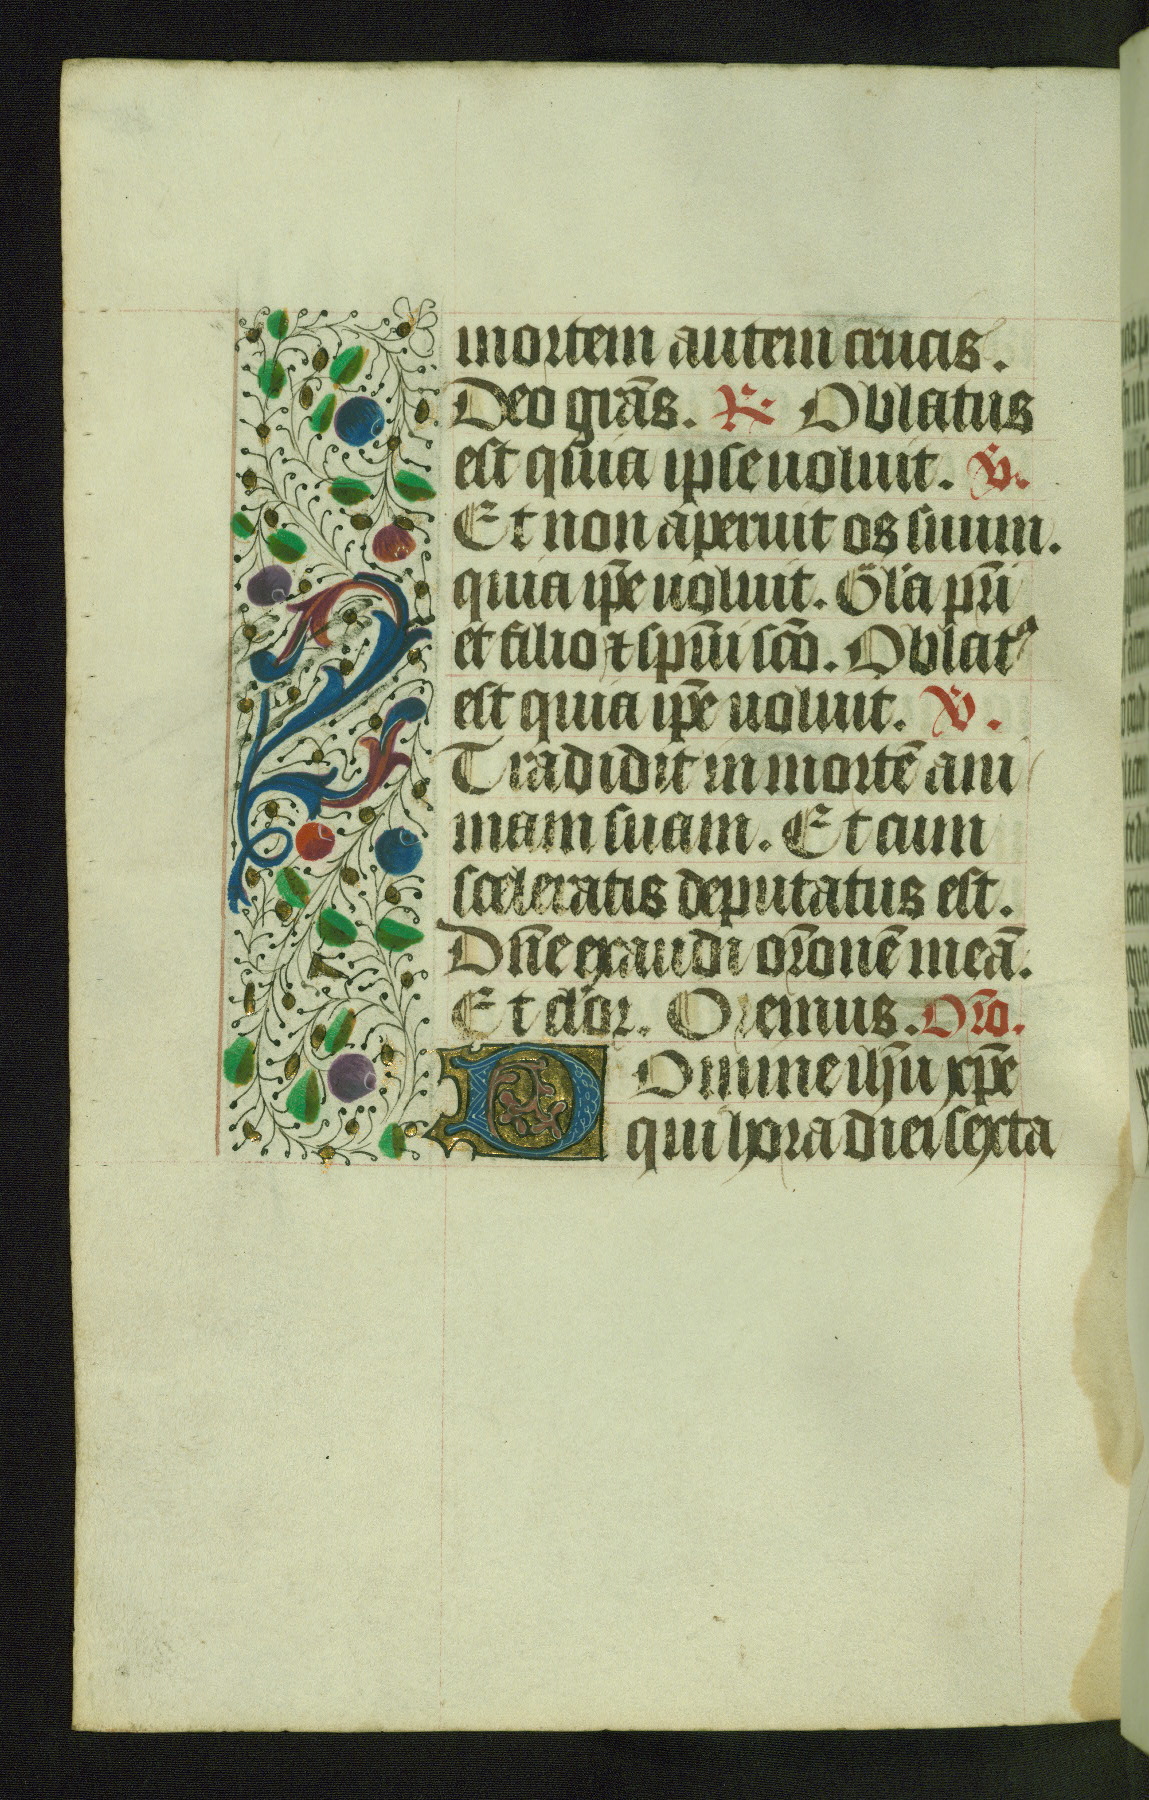 mortem autem crucis.
Deo grãs. R Oblatus
est quia ipse uoluit. V.
Et non aperuit os suum.
quia ip̃e uoluit. Gl̃a pr̃i
et filio ⁊ sp̃ui sc̃o. Oblatꝰ
est quia ip̃e uoluit. V.
Tradidit in mortẽ ani
mam suam. Et cum
sceleratis deputatus est.
Dñe exaudi or̃onẽ meã.
Et cl̃or. Oremus. Or̃o.
Domine ihũ xp̃e
qui hora diei sexta